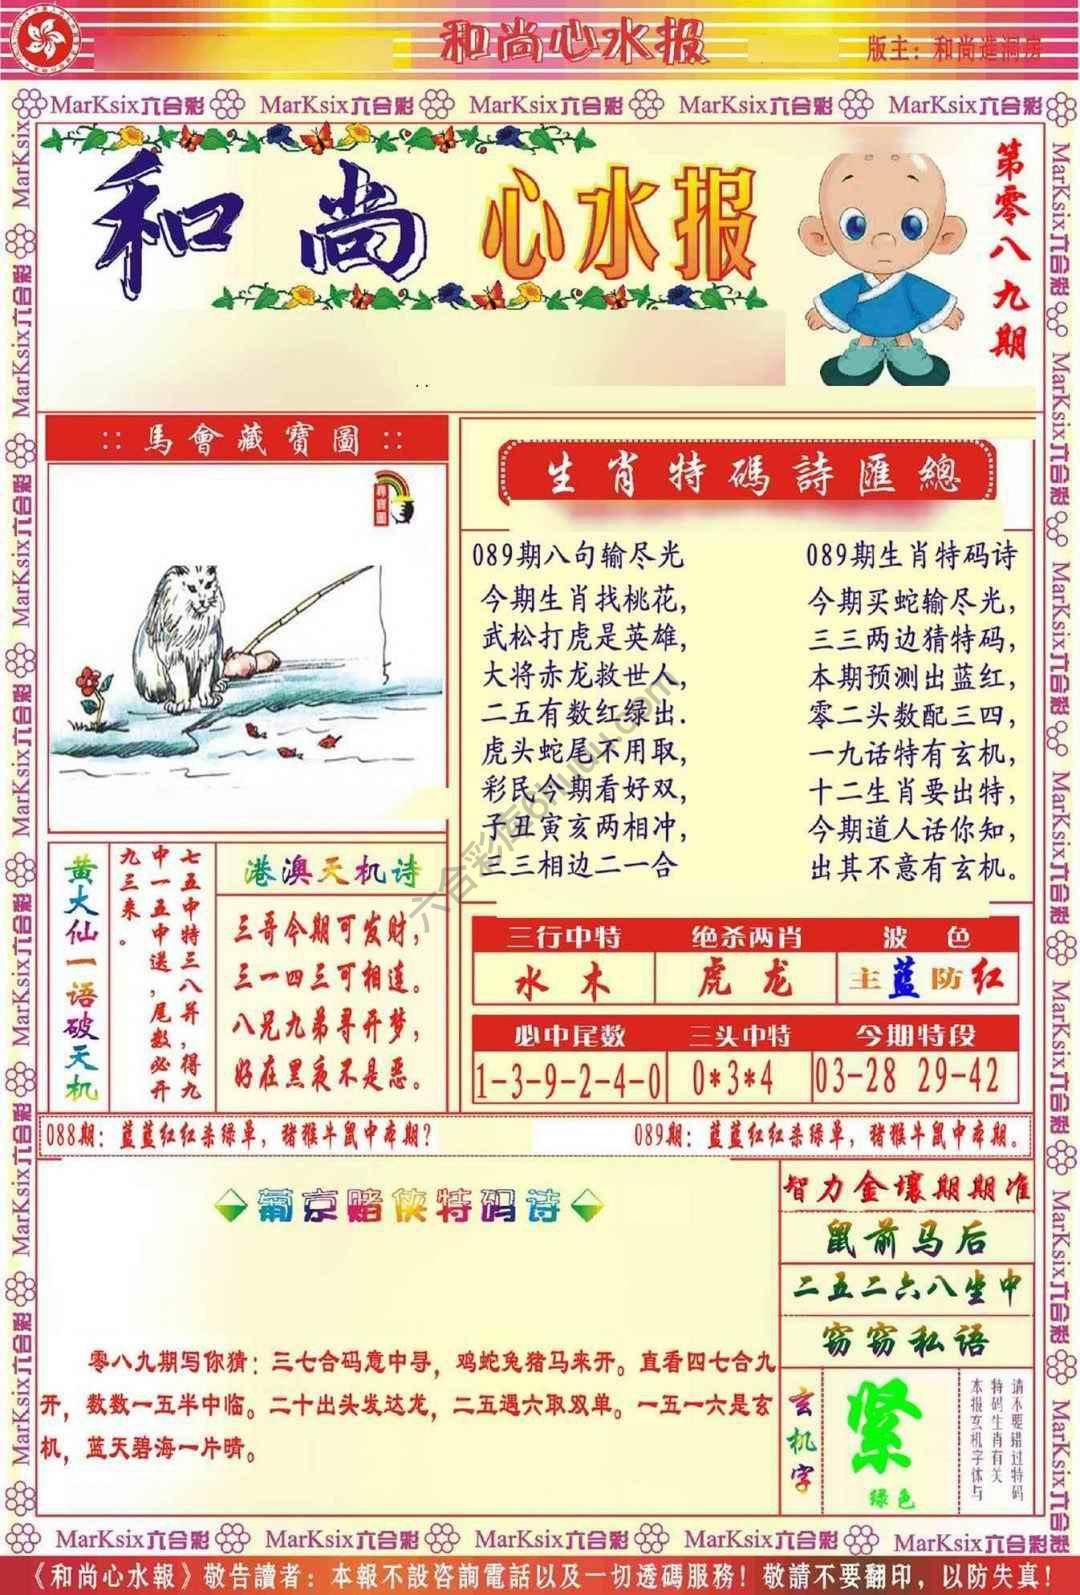 和尚心水报
版主：和尚進洞房
MarKsix六合彩 MarKsix六合彩 MarKsix六合彩 MarKsix六合彩 MarKsix六合彩
和尚心水报
第零八九期
::馬會藏寶圖::
尋寶圖
生肖特碼詩匯總
089期八句输尽光
今期生肖找桃花，
武松打虎是英雄，
大将赤龙救世人，
二五有数红绿出.
虎头蛇尾不用取，
彩民今期看好双，
子丑寅亥两相冲，
三三相边二一合
089期生肖特码诗
今期买蛇输尽光，
三三两边猜特码，
本期预测出蓝红，
零二头数配三四，
一九话特有玄机，
十二生肖要出特，
今期道人话你知，
出其不意有玄机。
六合彩库6huuu.com
黄大仙一语破天机
七五中特三八并，得九
中一五中送，尾数必开
九三来。
港澳天机诗
三哥今期可发财，
三一四三可相连。
八兄九弟寻开梦，
好在黑夜不是恶。
三行中特 绝杀两肖 波色
水木 虎龙 主蓝防红
必中尾数 三头中特 今期特段
1-3-9-2-4-0 0*3*4 03-28 29-42
088期：蓝蓝红红杀绿单，猪猴牛鼠中本期？
089期：蓝蓝红红杀绿单，猪猴牛鼠中本期。
葡京赌侠特码诗
零八九期写你猜：三七合码意中寻，鸡蛇兔猪马来开。直看四七合九
开，数数一五半中临。二十出头发达龙，二五遇六取双单。一五一六是玄
机，蓝天碧海一片晴。
智力金壤期期准
鼠前马后
二五二六八坐中
窃窃私语
玄机字
紧
绿色
请不要错过特码
特码生肖有关
本报玄机字体与
MarKsix六合彩 MarKsix六合彩 MarKsix六合彩 MarKsix六合彩 MarKsix六合彩
《和尚心水報》敬告讀者：本報不設咨詢電話以及一切透碼服務！敬請不要翻印，以防失真！